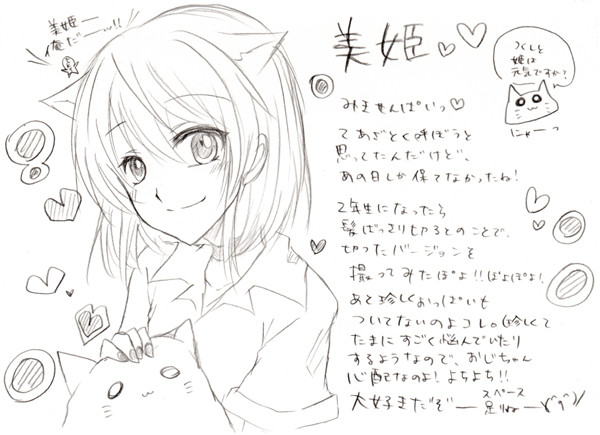 美姫ー
俺だーッ!!
美姫♡♡
つくしと
姫は
元気ですか?
にゃーっ
みきせんぱいっ♡
てあざとく呼ぼうと
思ってたんだけど、
あの日しか保てなかったね!
2年生になったら
髪ばっさり切るとのことで、
切ったバージョンを
撮ってみたぽよ!!ぽよぽよ!
あと珍しくおっぱいも
ついてないのよコレ。珍しくて
たまにすごく悩んでいたり
するようなので、おじちゃん
心配なのよ!よちよち!!
大好きだぞー
スペース
足りねー